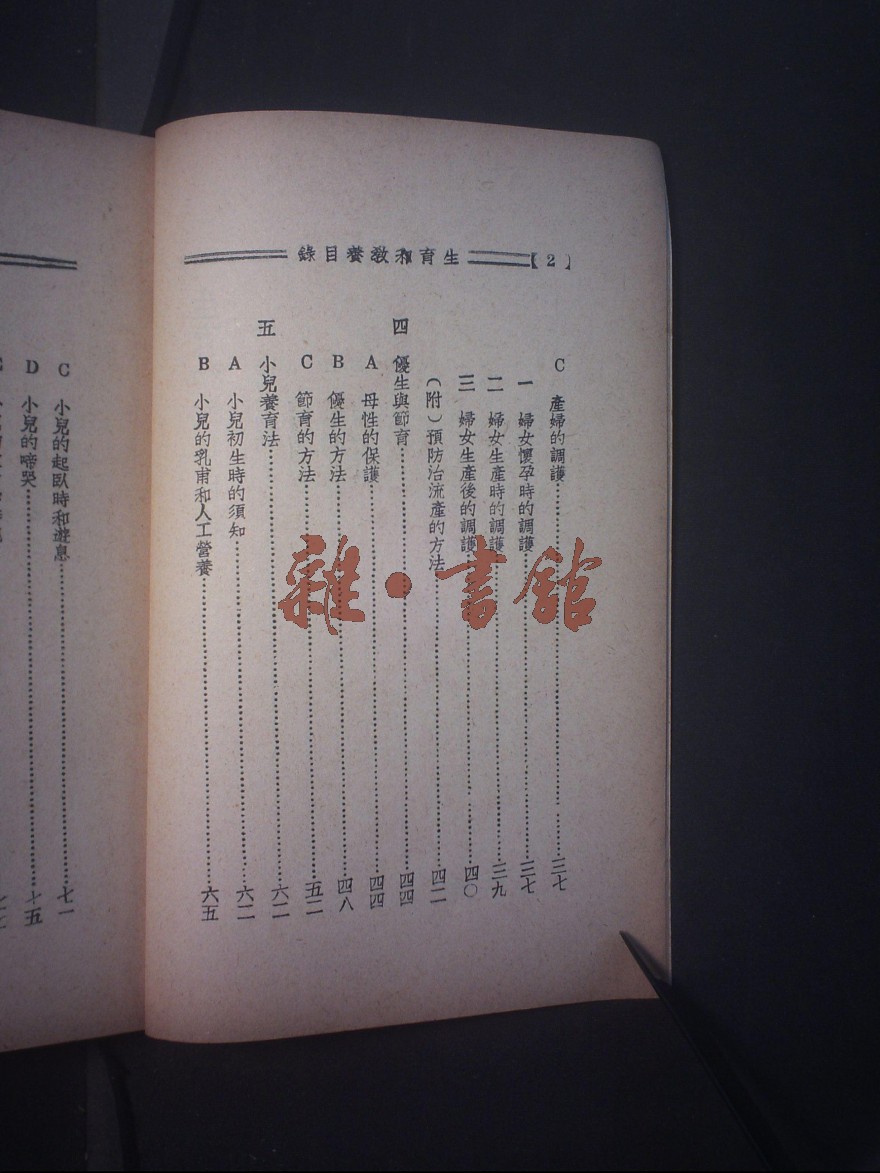 錄目養敎和育生【2】
C 產婦的調護……三七
一 婦女懷孕時的調護……三七
二 婦女生產時的調護……三九
三 婦女生產後的調護……四〇
（附）預防治流產的方法……四二
四 優生與節育……四四
A 母性的保護……四四
B 優生的方法……四八
C 節育的方法……五二
五 小兒養育法……六二
A 小兒初生時的須知……六二
B 小兒的乳甫和人工營養……六五
C 小兒的起臥時和遊息……七一
D 小兒的啼哭……七五
雜·書館